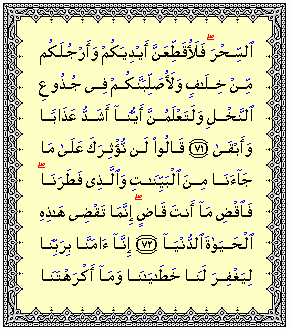 ٱلسِّحْرَ ۖ فَلَأُقَطِّعَنَّ أَيْدِيَكُمْ وَأَرْجُلَكُم
مِّنْ خِلَـٰفٍ وَلَأُصَلِّبَنَّكُمْ فِى جُذُوعِ
ٱلنَّخْلِ وَلَتَعْلَمُنَّ أَيُّنَآ أَشَدُّ عَذَابًا
وَأَبْقَىٰ ﴿٧١﴾ قَالُوا۟ لَن نُّؤْثِرَكَ عَلَىٰ مَا
جَآءَنَا مِنَ ٱلْبَيِّنَـٰتِ وَٱلَّذِى فَطَرَنَا ۖ
فَٱقْضِ مَآ أَنتَ قَاضٍ ۖ إِنَّمَا تَقْضِى هَـٰذِهِ
ٱلْحَيَوٰةَ ٱلدُّنْيَآ ﴿٧٢﴾ إِنَّآ ءَامَنَّا بِرَبِّنَا
لِيَغْفِرَ لَنَا خَطَـٰيَـٰنَا وَمَآ أَكْرَهْتَنَا